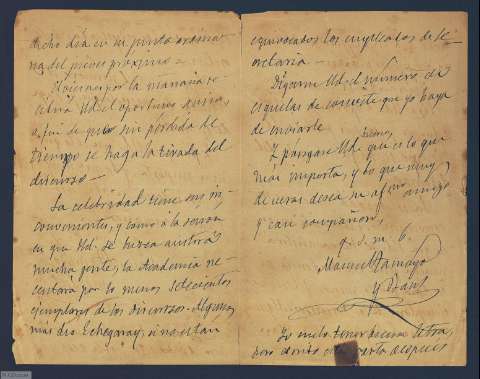 dicho día en su punto ordina-
ria del jueves próximo.=
Mañana por la mañana re-
cibirá Ud. el oportuno aviso,
a fin de que sin pérdida de
tiempo se haga la tirada del
discurso.=
La celebridad tiene sus in-
convenientes, y como á la sesion
en que Ud. se
mucha gente, la Academia ne-
cesitará por lo menos seiscientos
ejemplares de los discursos. Algunos
más dio Echegaray, si no están
equivocados los empleados de Se-
cretaría.=
Dígame Ud. el número de
esquelas de convite que yo haya
de enviarle
Y póngase Ud. bueno, que es lo que
más importa, y lo que muy
de veras desea su af.mo amigo
y casi compañero,
q. s. m. b.
Manuel Tamayo
y Baus
Yo suelo tener buena letra,
pero